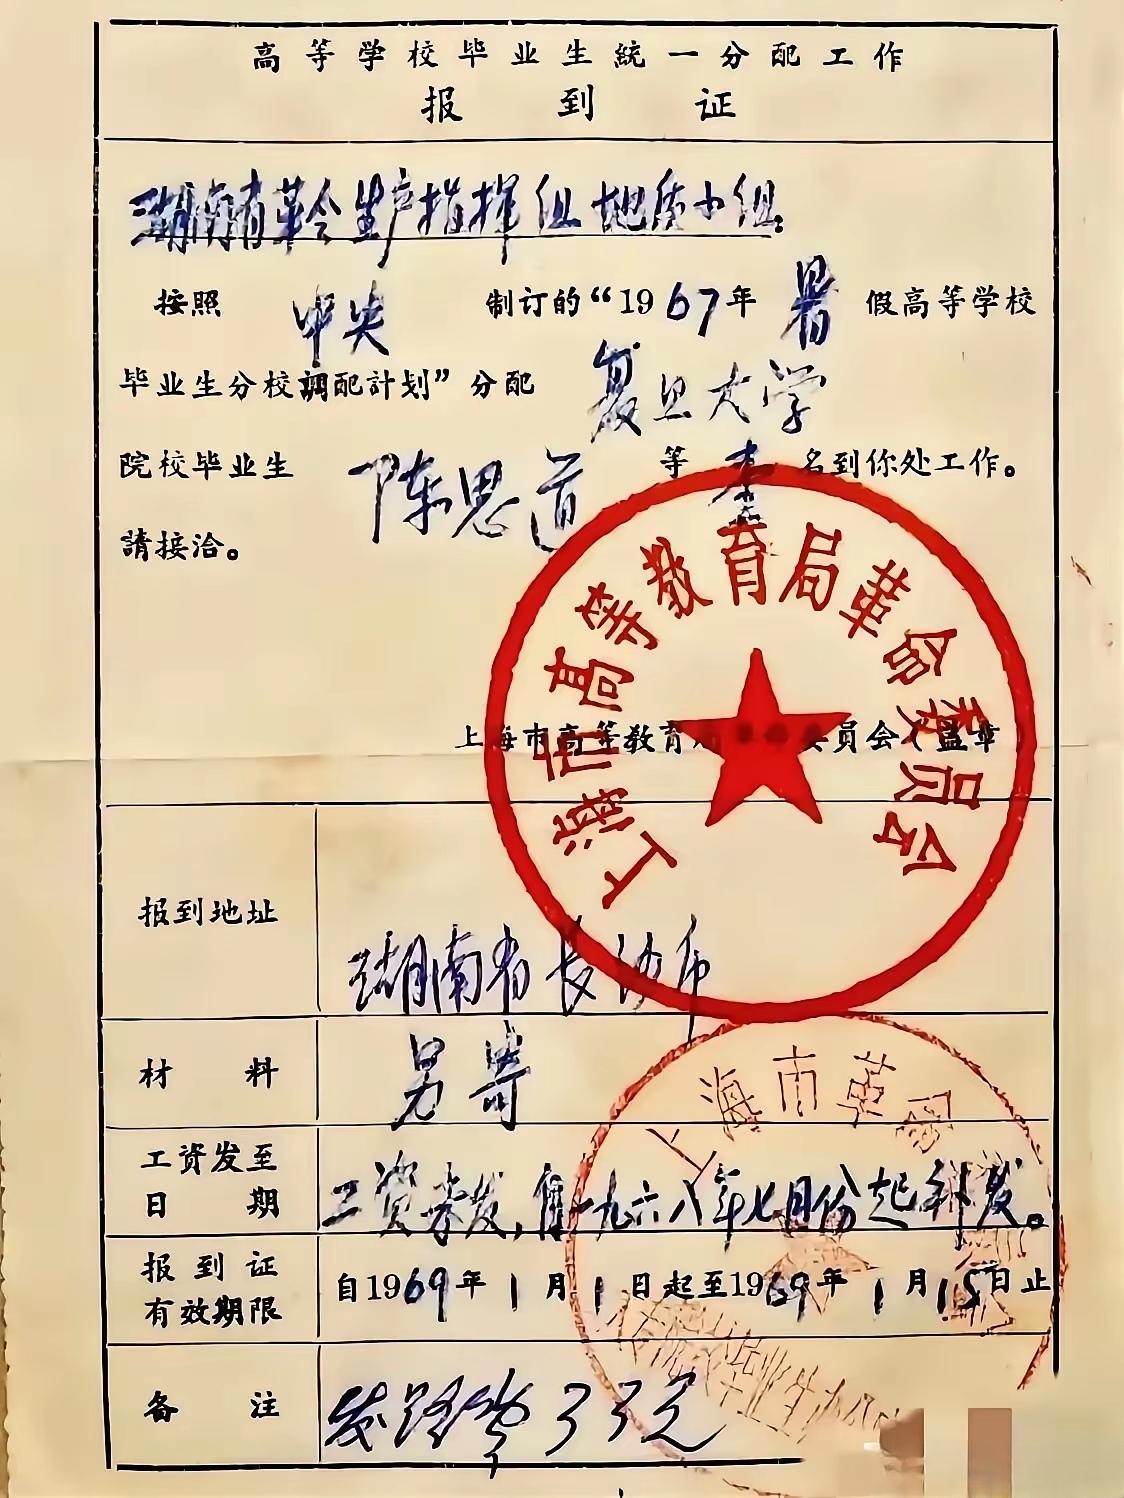 高等学校毕业生統一分配工作
报到证
湖南省革会生产指挥组地质小组
按照 中央 制订的“1967年 暑 假高等学校
毕业生分校調配計划”分配 复旦大学
院校毕业生 陈思道 等 壹 名到你处工作。
請接洽。
上海市高等教育局革命委員会（盖章）
上海市高等教育局革命委员会
报到地址 湖南省长沙市
材料 另寄
工资发至日期 工资未发，自一九六八年七月份起补发。
报到证有效期限 自1969年1月1日起至1969年1月15日止
备注 发路费33元
上海市革
毕业生办公